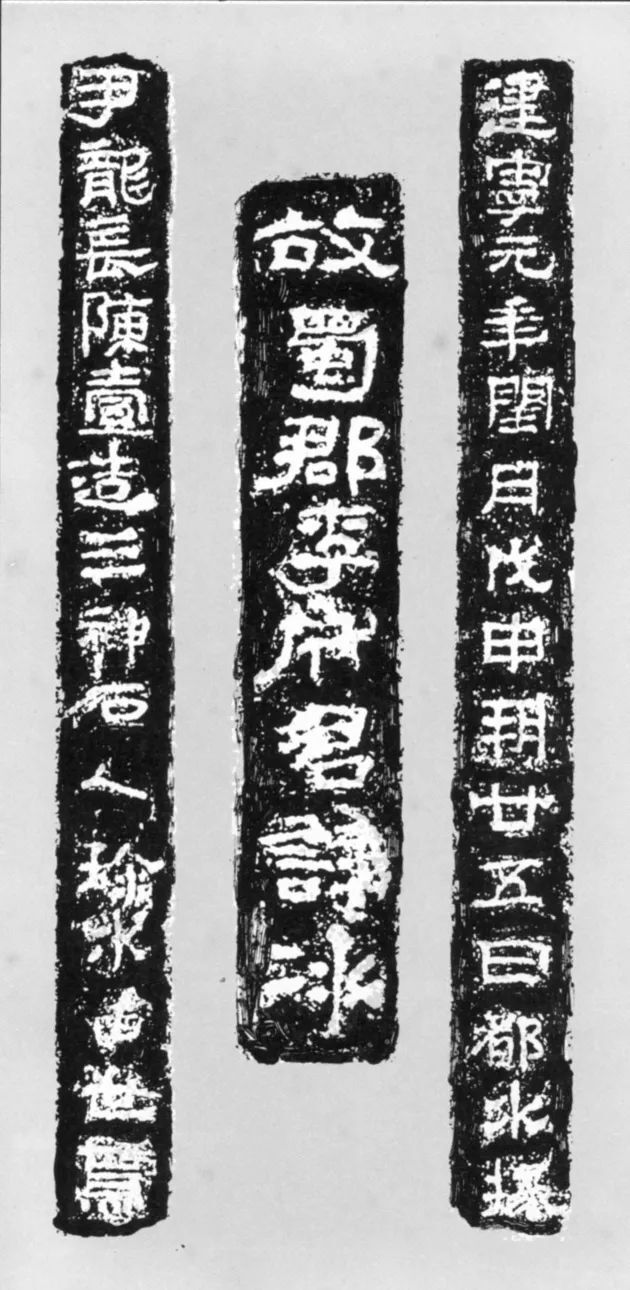 建寧元年閏月戊申朔廿五日都水掾
故蜀郡李府君諱冰
尹龍長陳壹造三神石人珎水萬世焉